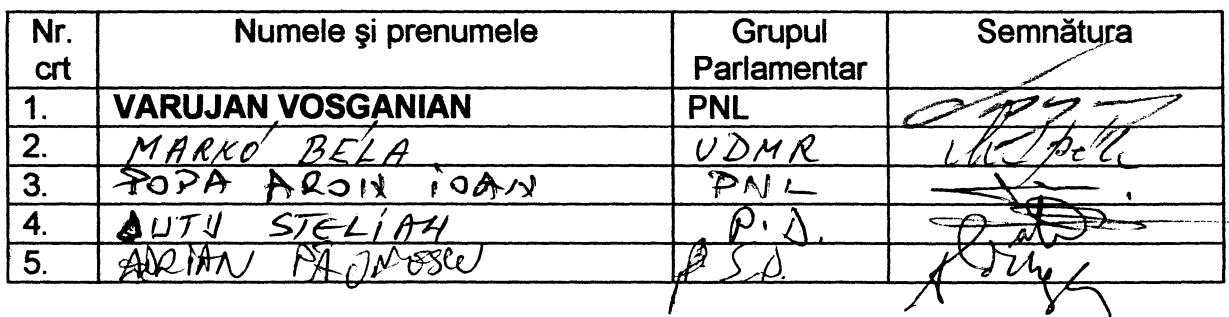 Nr. crt Numele și prenumele Grupul Parlamentar Semnătura
1. VARUJAN VOSGANIAN PNL
2. MARKÓ BÉLA UDMR
3. POPA ARON IOAN PNL
4. DUȚU STELIAN P.D.
5. ADRIAN PĂUNESCU PSD.